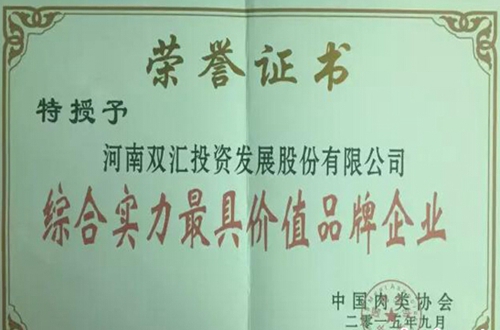 荣誉证书
特授予
河南双汇投资发展股份有限公司
综合实力最具价值品牌企业
中国肉类协会
二零一五年九月